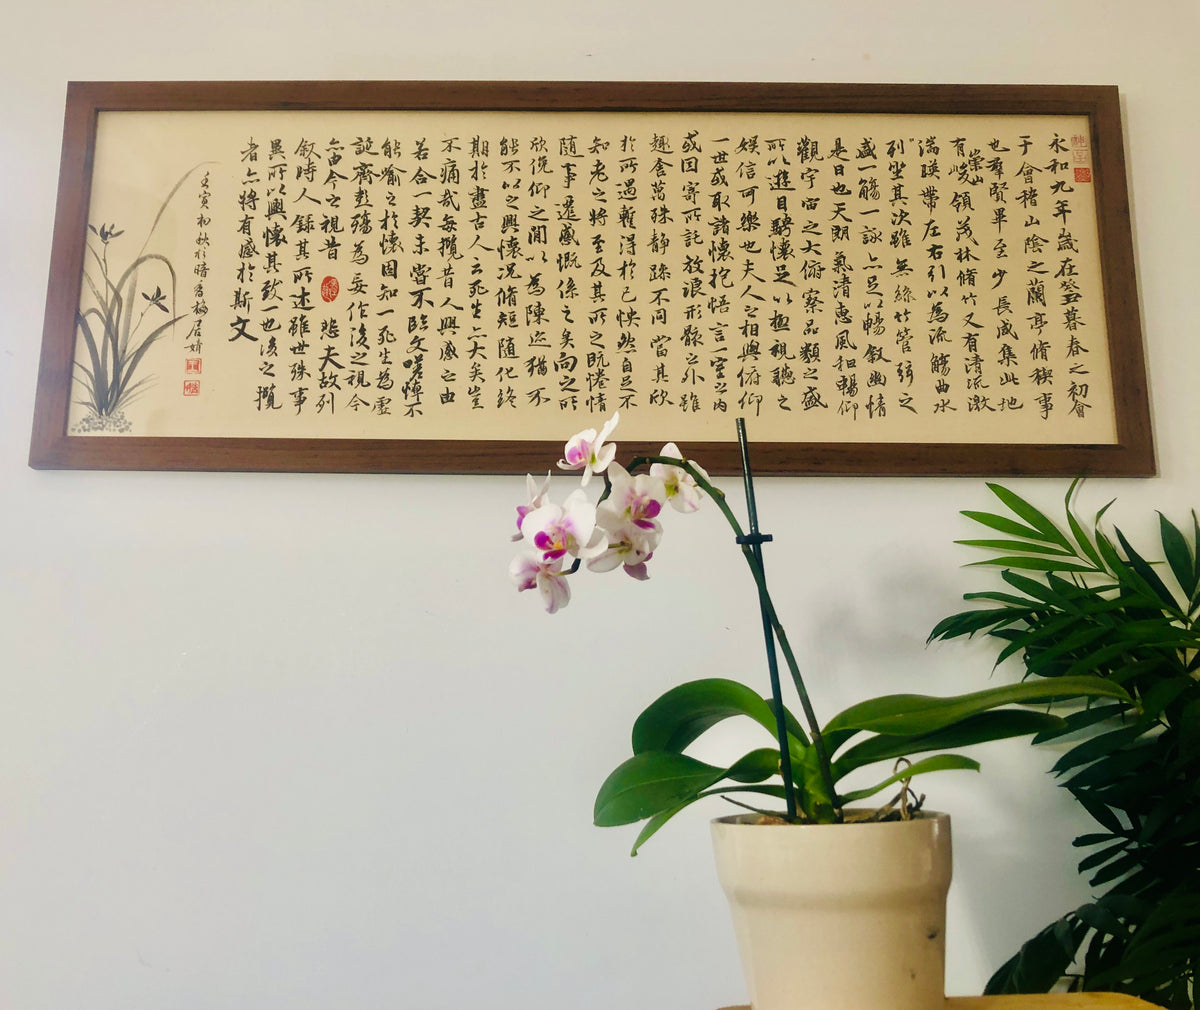 永和九年歲在癸丑暮春之初會
于會稽山陰之蘭亭脩稧事
也羣賢畢至少長咸集此地
有崇山峻領茂林脩竹又有清流激
湍暎帶左右引以為流觴曲水
列坐其次雖無絲竹管弦之
盛一觴一詠亦足以暢敘幽情
是日也天朗氣清惠風和暢仰
觀宇宙之大俯察品類之盛
所以遊目騁懷足以極視聽之
娛信可樂也夫人之相與俯仰
一世或取諸懷抱悟言一室之內
或因寄所託放浪形骸之外雖
趣舍萬殊靜躁不同當其欣
於所遇暫得於己怏然自足不
知老之將至及其所之既惓情
隨事遷感慨係之矣向之所
欣俛仰之閒以為陳迹猶不
能不以之興懷況脩短隨化終
期於盡古人云死生亦大矣豈
不痛哉每攬昔人興感之由
若合一契未嘗不臨文嗟悼不
能喻之於懷固知一死生為虛
誕齊彭殤為妄作後之視今
亦由今之視昔 悲夫故列
敘時人錄其所述雖世殊事
異所以興懷其致一也後之攬
者亦將有感於斯文
壬寅初秋於暗香梅居婧